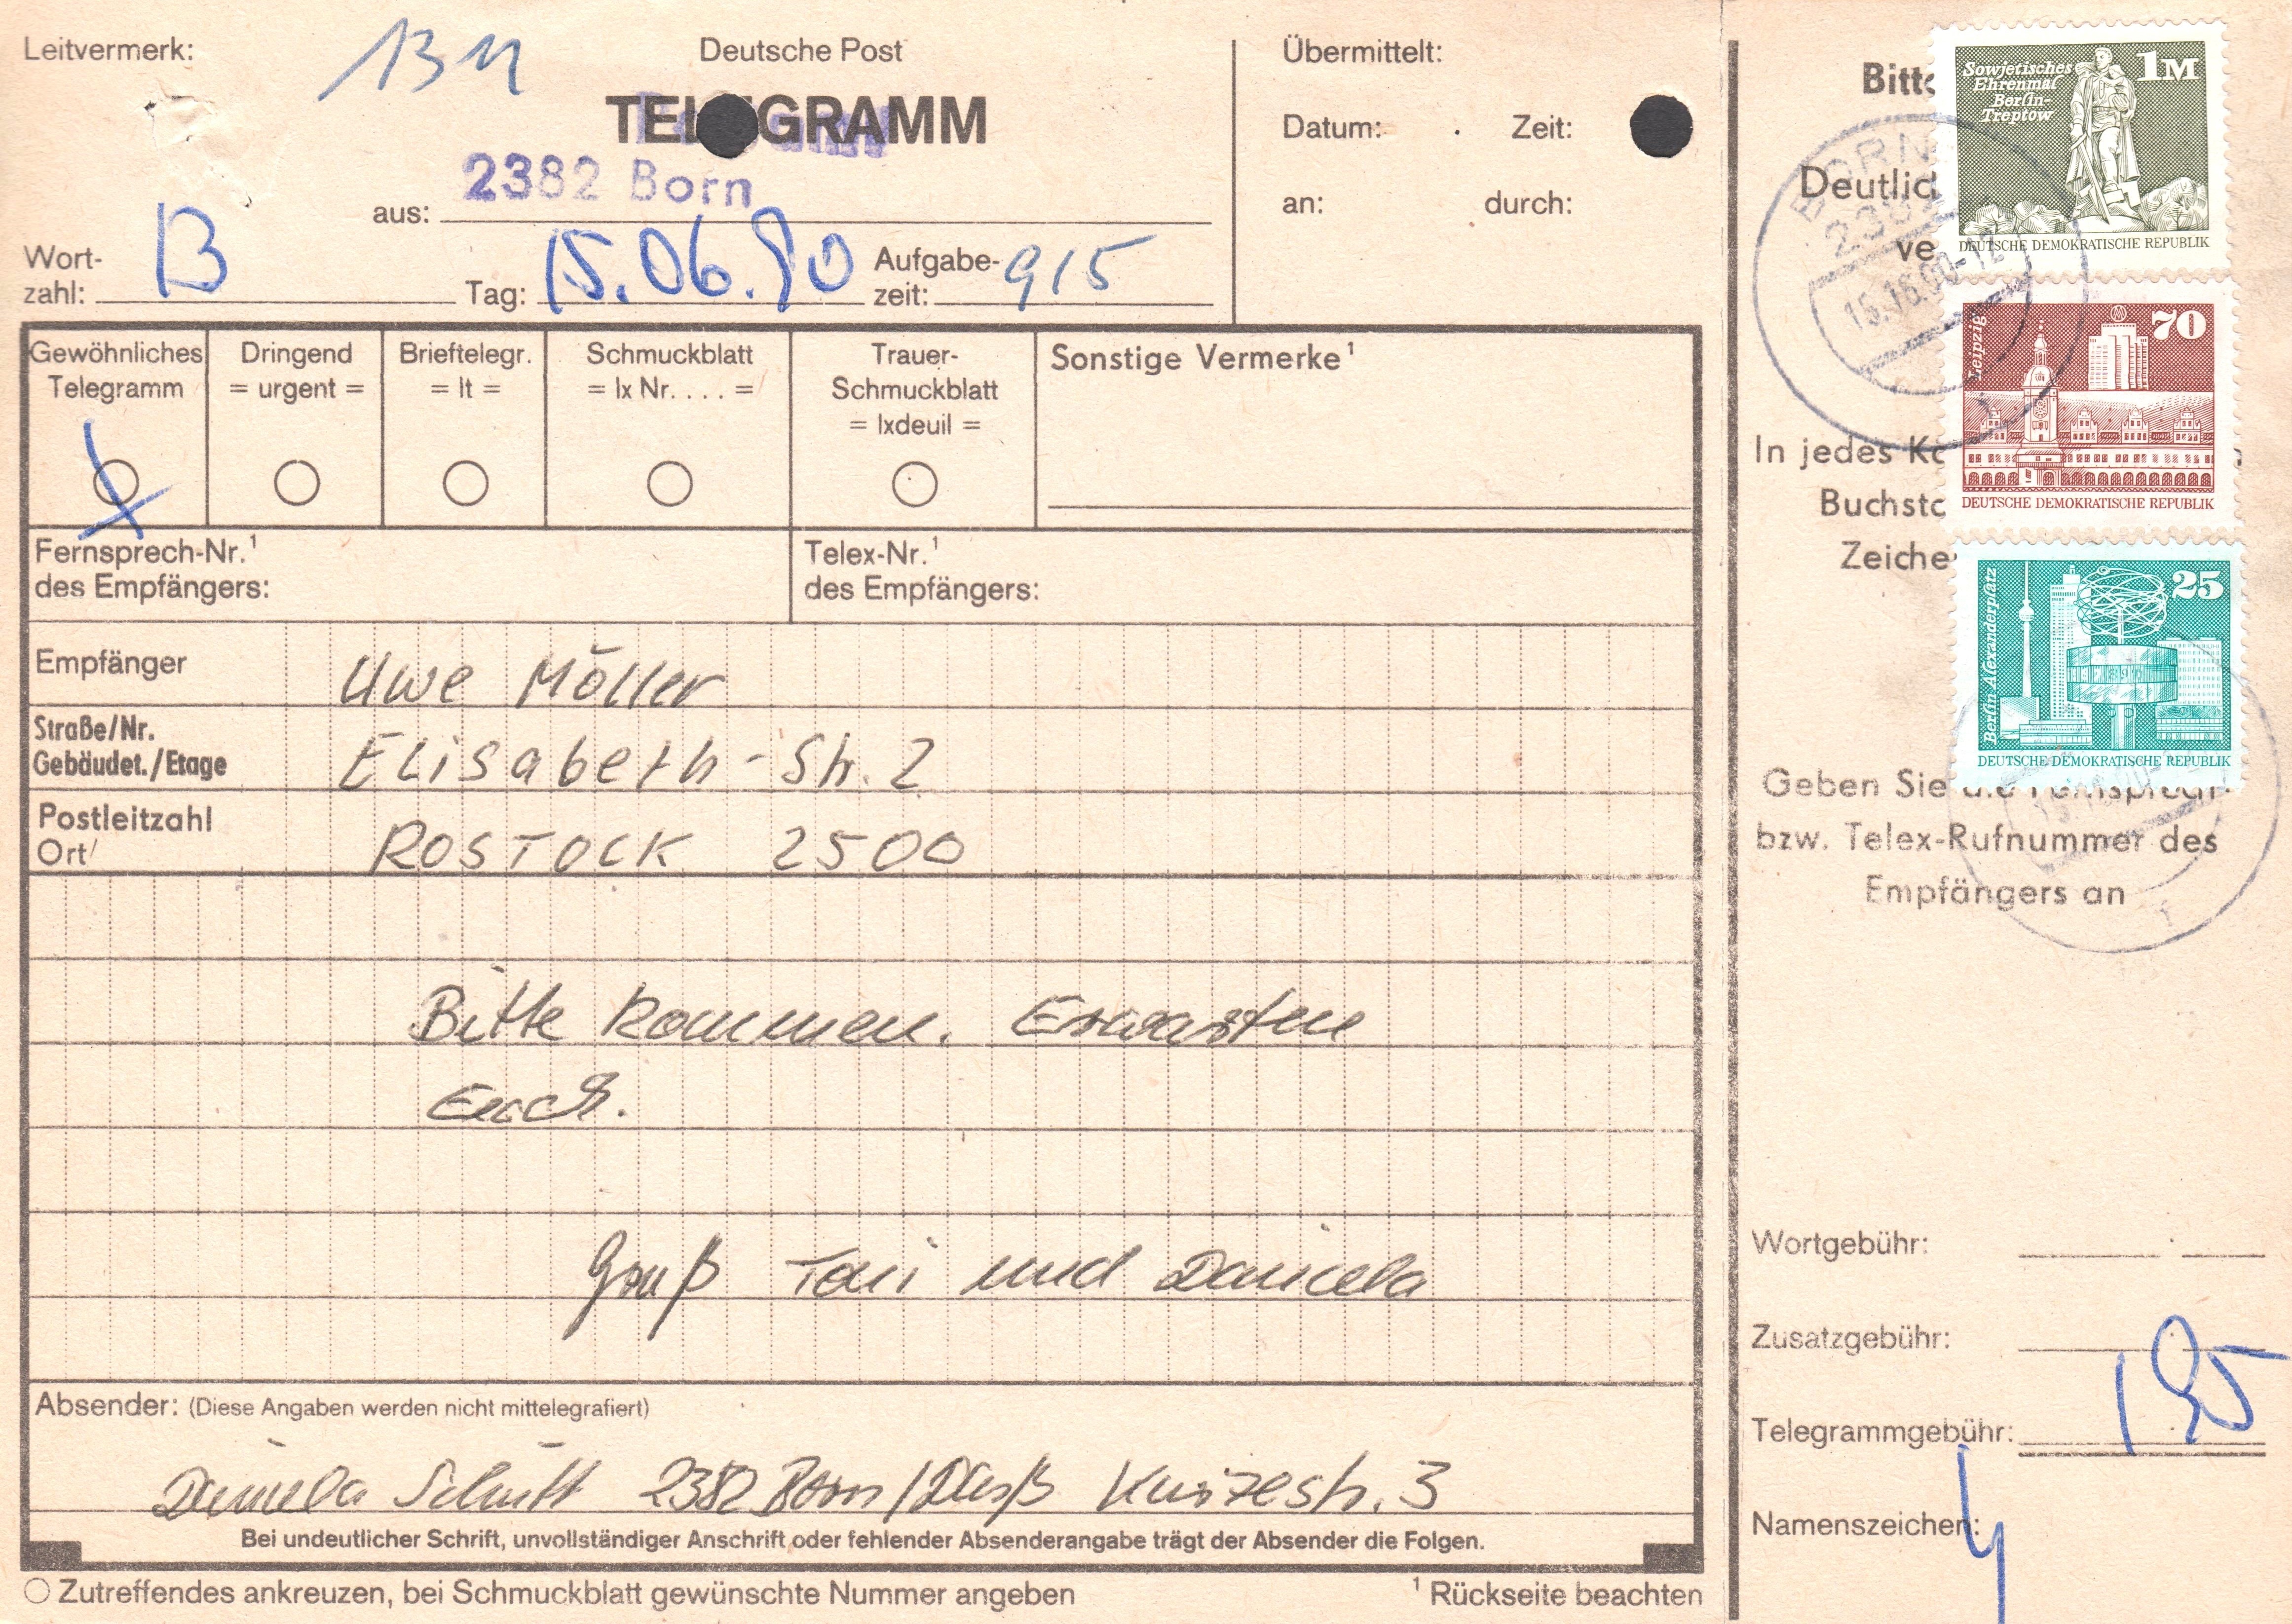 Leitvermerk:
Deutsche Post
TEL GRAMM
2382 Born
aus:
Wort-
zahl: 13
Tag: 15.06.90
Aufgabe-
zeit: 915
Übermittelt:
Datum: Zeit:
an: durch:
Gewöhnliches
Telegramm
Dringend
= urgent =
Brieftelegr.
= lt =
Schmuckblatt
= lx Nr. . . . =
Trauer-
Schmuckblatt
= lxdeuil =
Sonstige Vermerke¹
Fernsprech-Nr.¹
des Empfängers:
Telex-Nr.¹
des Empfängers:
Empfänger Uwe Möller
Straße/Nr.
Gebäudet./Etage Elisabeth-Str. 2
Postleitzahl
Ort ROSTOCK 2500
Bitte kommen. Erwarten
Euch.
Gruß Toni und Daniela
Absender: (Diese Angaben werden nicht mittelegrafiert)
Daniela Schütt 2382 Born/Darß Kurzestr. 3
Bei undeutlicher Schrift, unvollständiger Anschrift oder fehlender Absenderangabe trägt der Absender die Folgen.
Zutreffendes ankreuzen, bei Schmuckblatt gewünschte Nummer angeben
¹ Rückseite beachten
Bitt
Deutlic
ve
In jedes K
Buchst
Zeiche
Geben Sie die Fernsprech-
bzw. Telex-Rufnummer des
Empfängers an
Sowjetisches
Ehrenmal
Berlin-
Treptow
1M
DEUTSCHE DEMOKRATISCHE REPUBLIK
Leipzig
70
DEUTSCHE DEMOKRATISCHE REPUBLIK
Berlin Alexanderplatz
25
DEUTSCHE DEMOKRATISCHE REPUBLIK
BORN
Wortgebühr:
Zusatzgebühr:
Telegrammgebühr: 195
Namenszeichen: